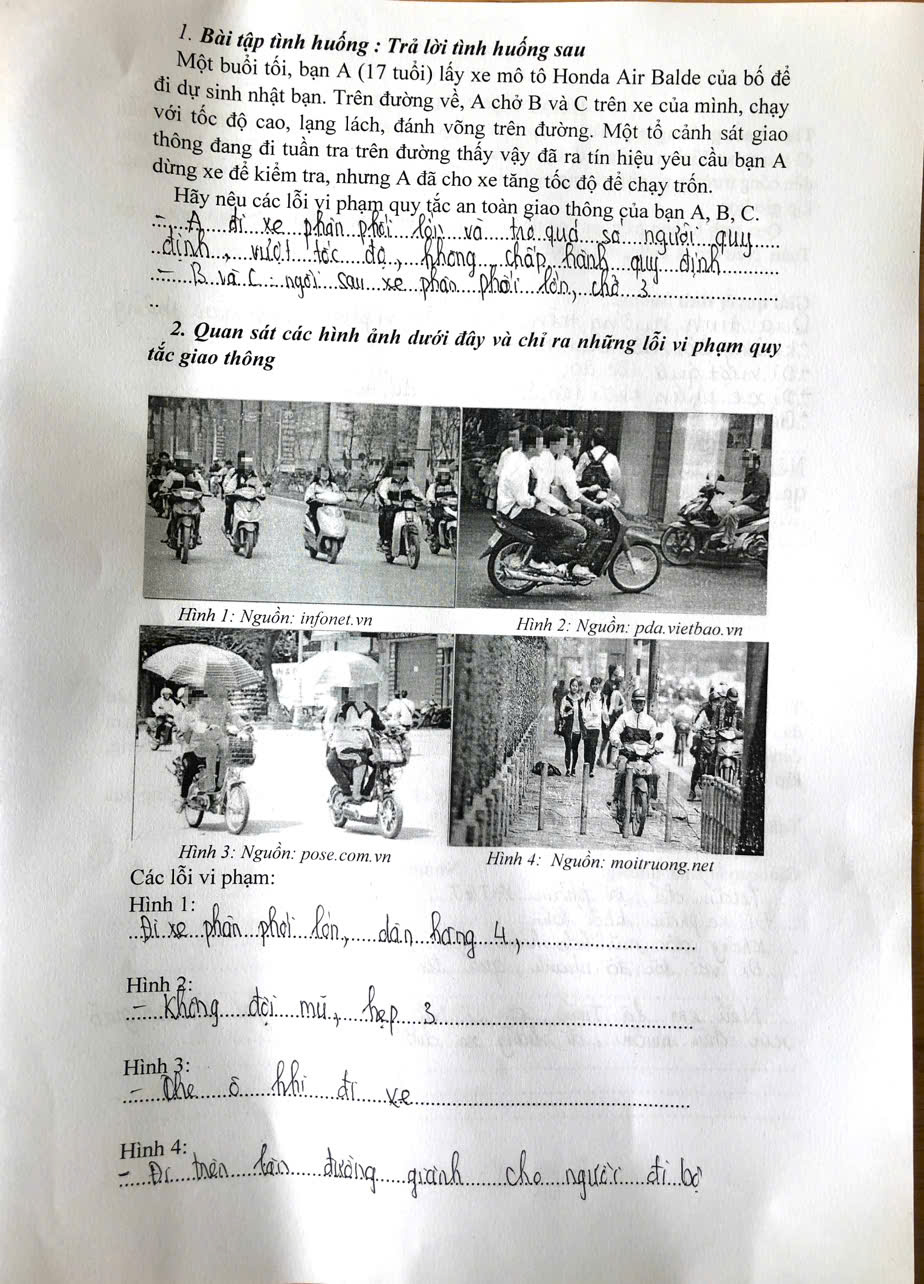 1. Bài tập tình huống : Trả lời tình huống sau
Một buổi tối, bạn A (17 tuổi) lấy xe mô tô Honda Air Balde của bố để
đi dự sinh nhật bạn. Trên đường về, A chở B và C trên xe của mình, chạy
với tốc độ cao, lạng lách, đánh võng trên đường. Một tổ cảnh sát giao
thông đang đi tuần tra trên đường thấy vậy đã ra tín hiệu yêu cầu bạn A
dừng xe để kiểm tra, nhưng A đã cho xe tăng tốc độ để chạy trốn.
Hãy nêu các lỗi vi phạm quy tắc an toàn giao thông của bạn A, B, C.
- A đi xe phân phối lớn và trở quá số người quy
định, vượt tốc độ, không chấp hành quy định
- B và C: ngồi sau xe phân phối lớn, chở 3
2. Quan sát các hình ảnh dưới đây và chỉ ra những lỗi vi phạm quy
tắc giao thông
Hình 1: Nguồn: infonet.vn
Hình 2: Nguồn: pda.vietbao.vn
Hình 3: Nguồn: pose.com.vn
Hình 4: Nguồn: moitruong.net
Các lỗi vi phạm:
Hình 1:
Đi xe phân phối lớn, dàn hàng 4,
Hình 2:
- Không đội mũ, kẹp 3
Hình 3:
- Che ô khi đi xe
Hình 4:
- Đi trên làn đường giành cho người đi bộ